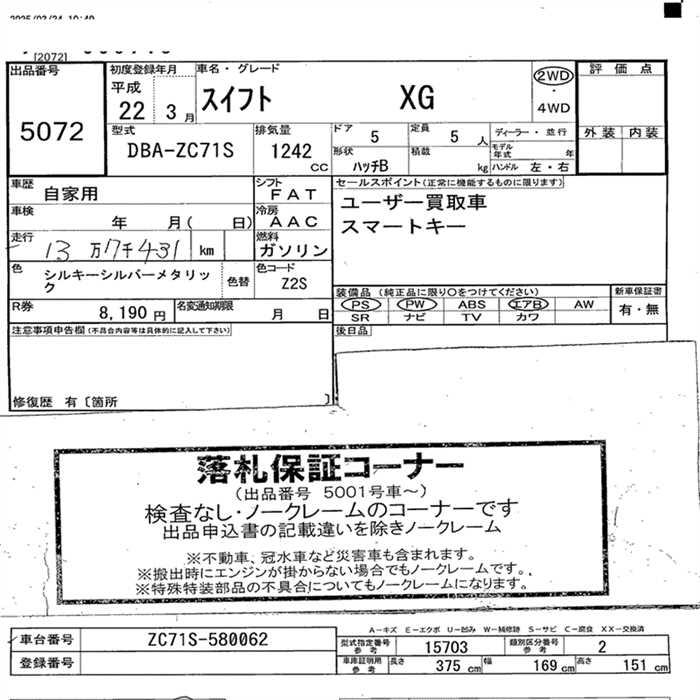 [2072]
出品番号
5072
初度登録年月
平成
22年 3月
車名・グレード
スイフト XG
2WD
・
4WD
評価点
外装 内装
型式
DBA-ZC71S
排気量
1242
CC
ドア 5
定員 5 人
ディーラー・並行
モデル年式 年
形状 ハッチB
積載 kg
ハンドル 左・右
車歴 自家用
シフト FAT
車検 年 月( 日)
冷房 AAC
走行 13万17千431 km
燃料 ガソリン
色 シルキーシルバーメタリック
色替
色コード Z2S
R券 8,190 円
名変通知期限 月 日
セールスポイント(正常に機能するものに限ります)
ユーザー買取車
スマートキー
装備品(純正品に限り○をつけてください)
PS PW ABS エアB AW
SR ナビ TV カワ
新車保証書
有・無
後日品
注意事項申告欄(不具合内容等は具体的に記入して下さい)
修復歴 有〔箇所 〕
落札保証コーナー
(出品番号 5001号車~)
検査なし・ノークレームのコーナーです
出品申込書の記載違いを除きノークレーム
※不動車、冠水車など災害車も含まれます。
※搬出時にエンジンが掛からない場合でもノークレームです。
※特殊特装部品の不具合についてもノークレームになります。
A-キズ E-エクボ U-凹み W-補修跡 S-サビ C-腐食 XX-交換済
車台番号 ZC71S-580062
型式指定番号参考 15703
類別区分番号参考 2
登録番号
車庫証明用参考 長さ 375 cm 幅 169 cm 高さ 151 cm